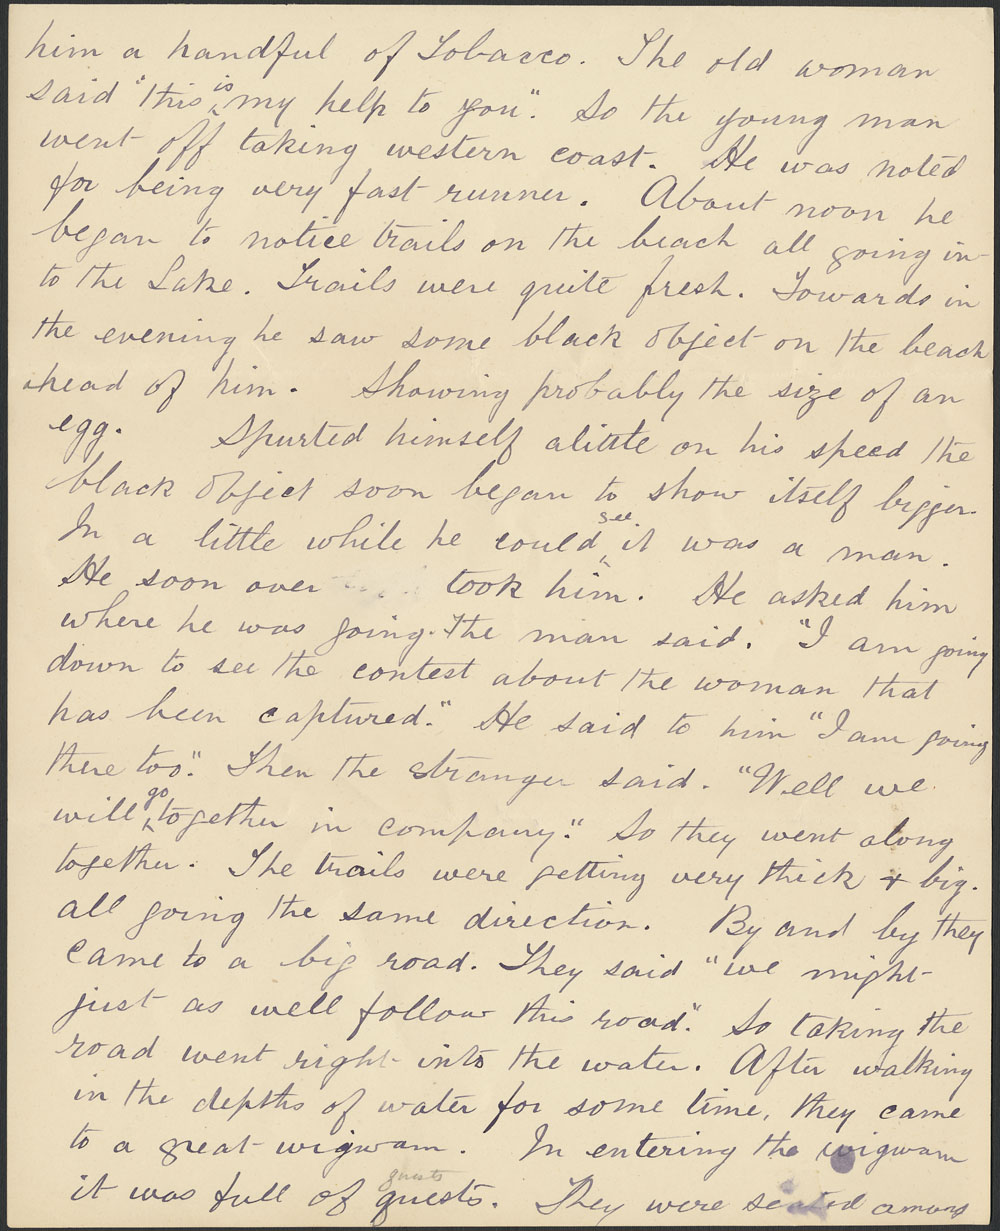 him a handful of Tobacco. The old woman
said "this is my help to you". So the young man
went off taking western coast. He was noted
for being very fast runner. About noon he
began to notice trails on the beach all going in
to the Lake. Trails were quite fresh. Towards in
the evening he saw some black object on the beach
ahead of him. Showing probably the size of an
egg. Spurted himself alittle on his speed the
black object soon began to show itself bigger.
In a little while he could see it was a man.
He soon over took him. He asked him
where he was going. The man said. "I am going
down to see the contest about the woman that
has been captured." He said to him "I am going
there too". Then the stranger said. "Well we
will go together in company." So they went along
together. The trails were getting very thick + big.
all going the same direction. By and by they
came to a big road. They said "we might
just as well follow this road". So taking the
road went right into the water. After walking
in the depths of water for some time, they came
to a great wigwam. In entering the wigwam
it was full of guests. guests They were seated among